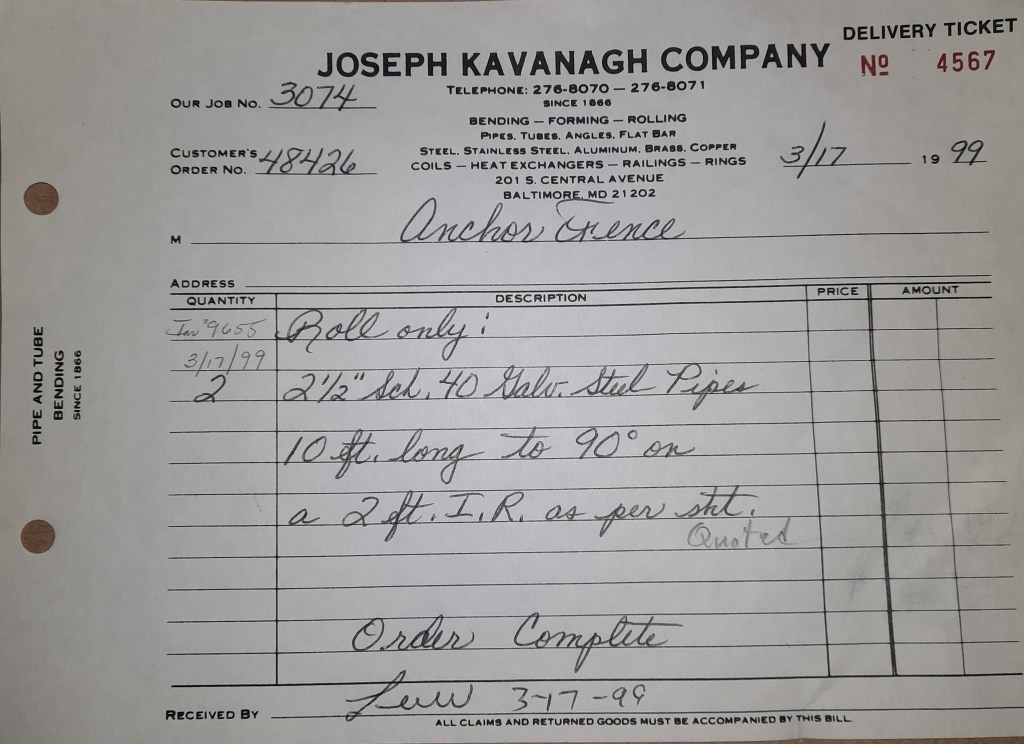 DELIVERY TICKET
JOSEPH KAVANAGH COMPANY
No 4567
TELEPHONE: 276-8070 — 276-8071
SINCE 1866
OUR JOB NO. 3074
BENDING — FORMING — ROLLING
PIPES, TUBES, ANGLES, FLAT BAR
STEEL, STAINLESS STEEL, ALUMINUM, BRASS, COPPER
CUSTOMER'S ORDER NO. 48426
COILS — HEAT EXCHANGERS — RAILINGS — RINGS
3/17 19 99
201 S. CENTRAL AVENUE
BALTIMORE, MD 21202
M Anchor Fence
ADDRESS
QUANTITY DESCRIPTION PRICE AMOUNT
Inv# 9655 Roll only:
3/17/99
2 2½" Sch. 40 Galv. Steel Pipes
10 ft. long to 90° on
a 2 ft. I.R. as per sht.
Quoted
Order Complete
RECEIVED BY 3-17-99
ALL CLAIMS AND RETURNED GOODS MUST BE ACCOMPANIED BY THIS BILL
PIPE AND TUBE
BENDING
SINCE 1866